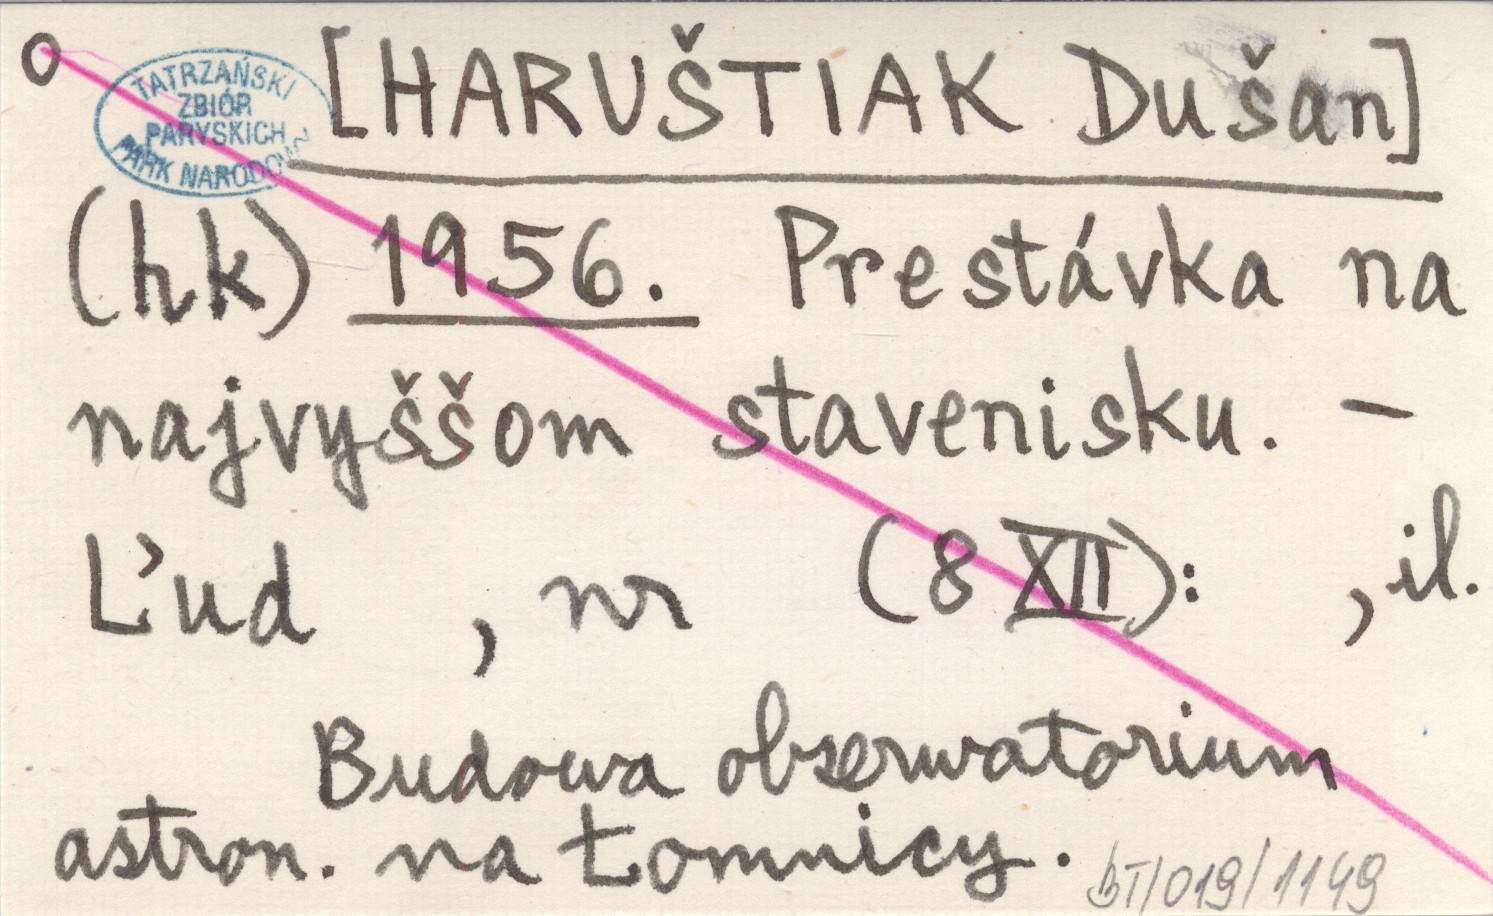 O
TATRZAŃSKI
ZBIÓR
PARYSKICH
PARK NARODOWY
[HARUŠTIAK Dušan]
(hk) 1956. Prestávka na
najvyššom stavenisku. –
Ľud , nr (8 XII): , il.
Budowa obserwatorium
astron. na Łomnicy.
bT/019/1149